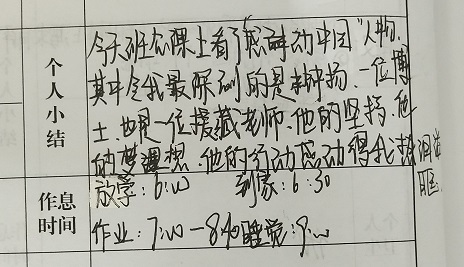 个人小结
今天班会课上看了感动中国人物.
其中令我最深刻的是钟扬.一位博
士也是一位援藏老师.他的坚持.他
的梦想.他的行动感动得我热泪盈
眶
作息时间
放学:6:00 到家:6:30
作业:7:00-8:40睡觉:9:00